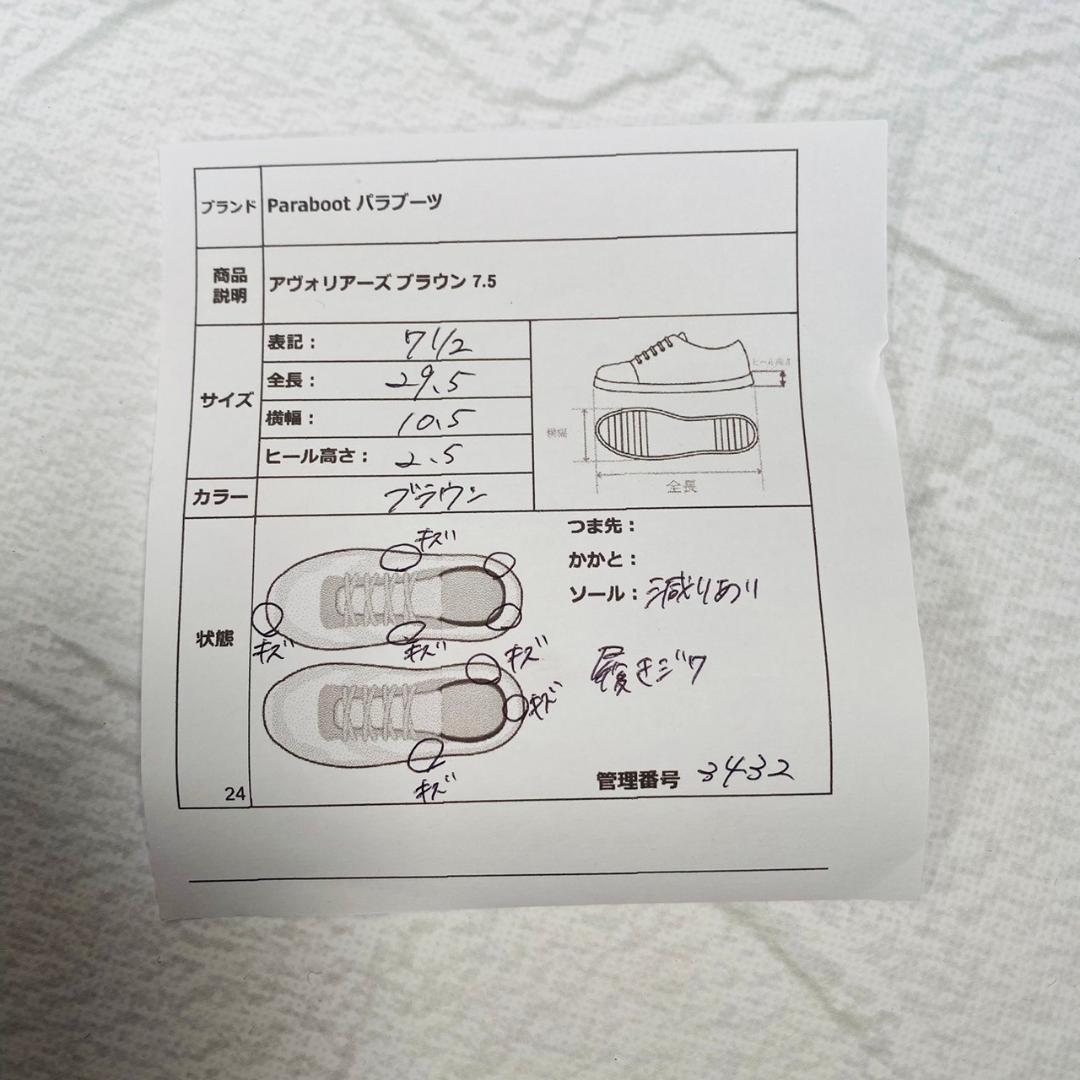 ブランド Paraboot パラブーツ
商品説明 アヴォリアーズ ブラウン 7.5
サイズ
表記： 7 1/2
全長： 29.5
横幅： 10.5
ヒール高さ： 2.5
ヒール高さ
横幅
全長
カラー ブラウン
状態
キズ
キズ
キズ
キズ
キズ
キズ
つま先：
かかと：
ソール： 減りあり
履きジワ
管理番号 3432
24